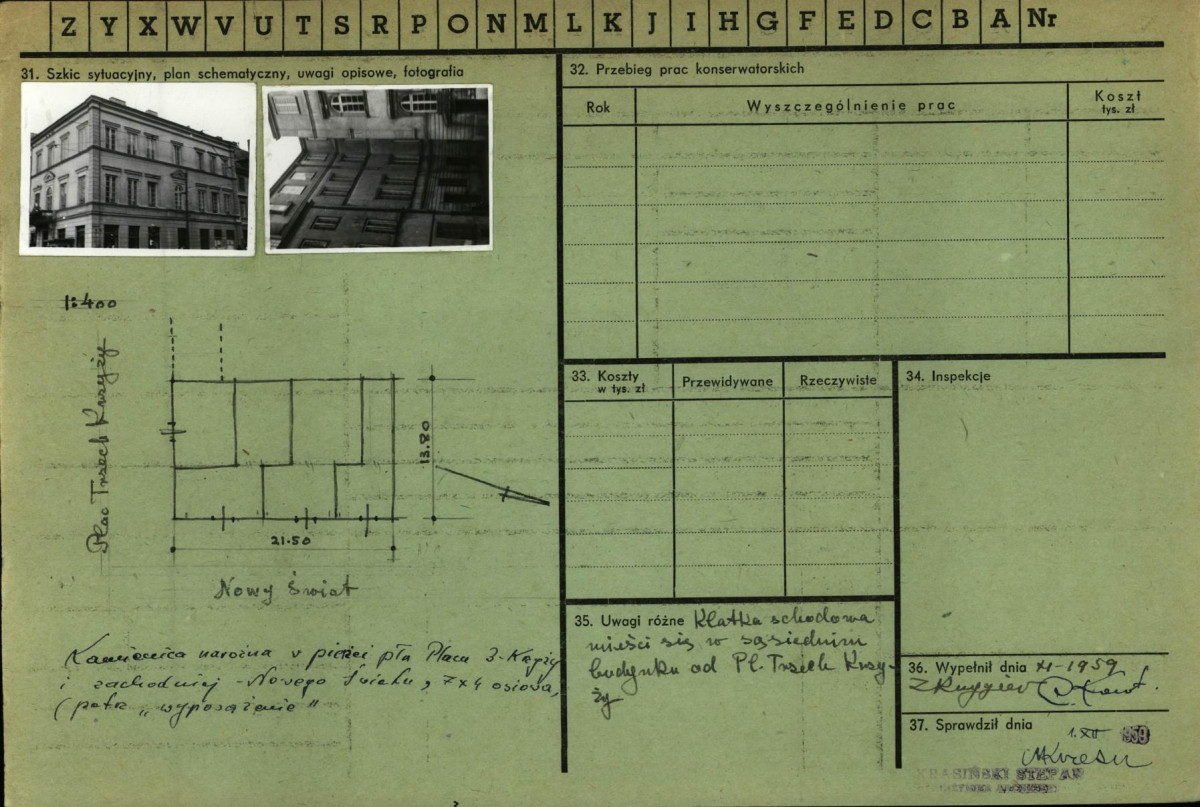 Z Y X W V U T S R P O N M L K J I H G F E D C B A Nr
31. Szkic sytuacyjny, plan schematyczny, uwagi opisowe, fotografia
1:400
Plac Trzech Krzyży
13.80
21.50
Nowy Świat
Kamienica narożna w pierzei płn Placu 3-Krzyży
i zachodniej - Nowego Światu, 7x4 osiowa,
(patrz „wyposażenie"
32. Przebieg prac konserwatorskich
Rok Wyszczególnienie prac Koszt
tys. zł
33. Koszty
w tys. zł
Przewidywane Rzeczywiste
34. Inspekcje
35. Uwagi różne Klatka schodowa
mieści się w sąsiednim
budynku od Pl. Trzech Krzy-
ży
36. Wypełnił dnia XI-1959
37. Sprawdził dnia
1.XII 1959
KRASIŃSKI STEFAN